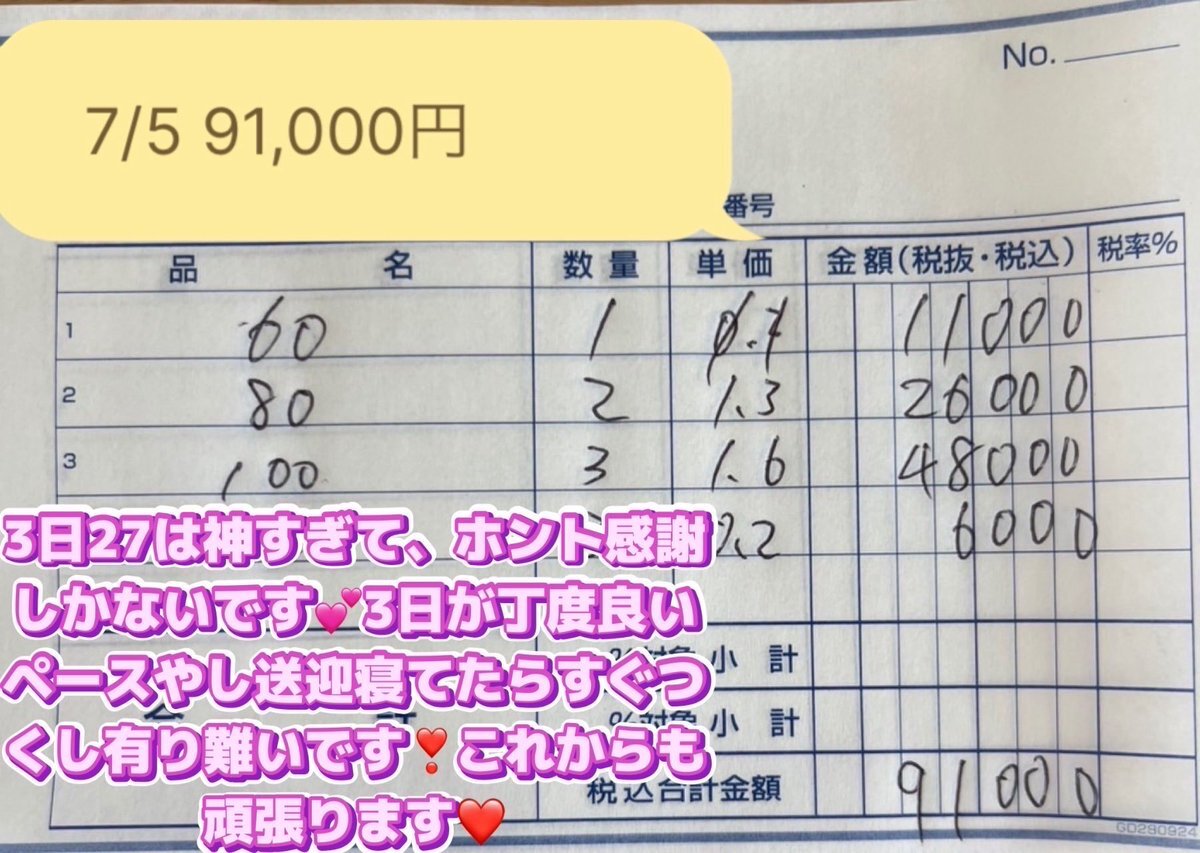 No.
7/5 91,000円
番号
品 名 数量 単価 金額(税抜・税込) 税率%
1 60 1 11000
2 80 2 1.3 26000
3 100 3 1.6 48000
0.2 6000
3日27は神すぎて、ホント感謝
しかないです💕3日が丁度良い
ペースやし送迎寝てたらすぐつ
くし有り難いです❣️これからも
頑張ります❤️
%対象 小 計
%対象 小 計
税込合計金額 91000
GD280924